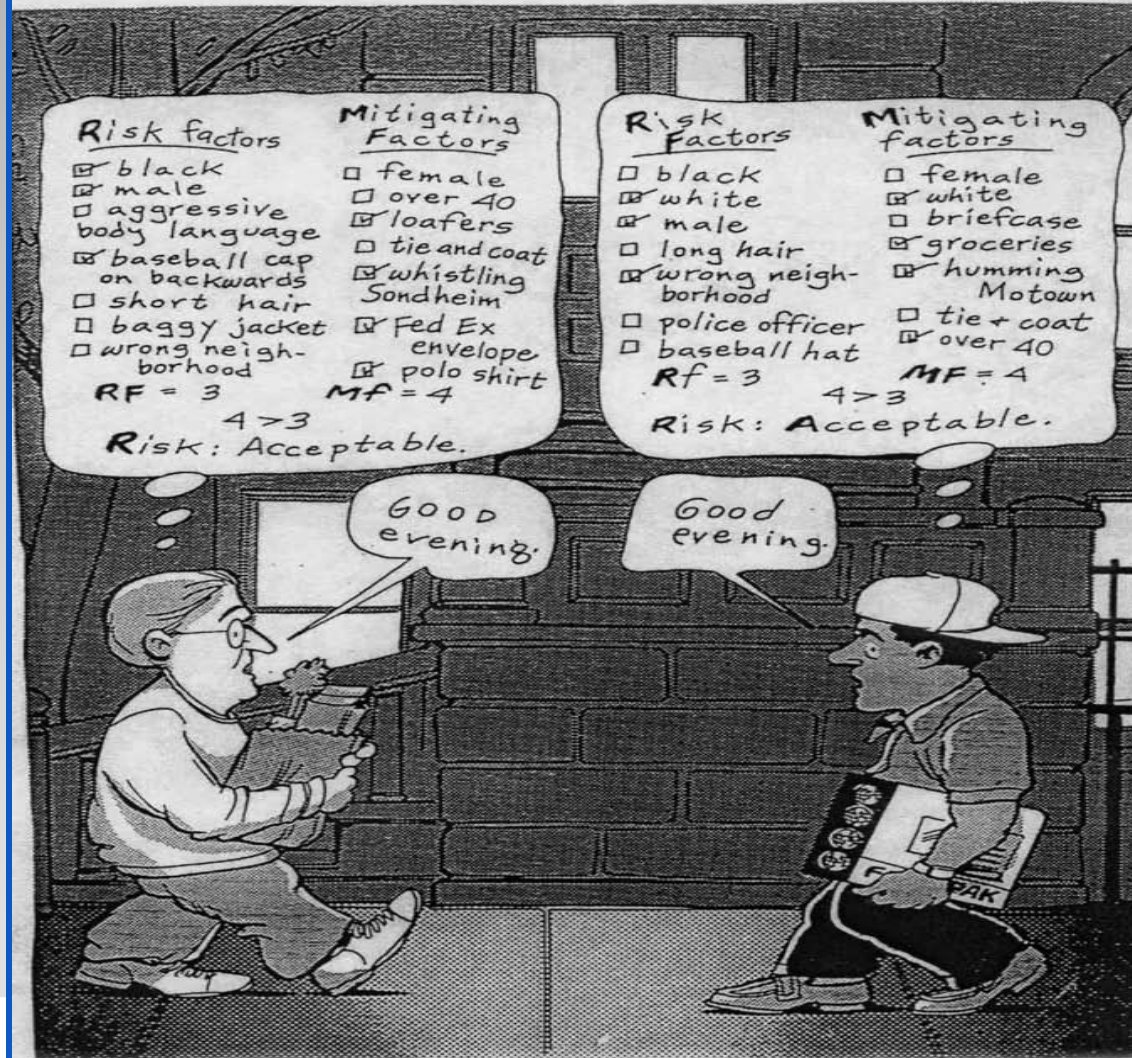 Risk factors
☑ black
☑ male
☐ aggressive
body language
☑ baseball cap
on backwards
☐ short hair
☐ baggy jacket
☐ wrong neigh-
borhood
RF = 3
Mitigating
Factors
☐ female
☐ over 40
☑ loafers
☐ tie and coat
☑ whistling
Sondheim
☑ Fed Ex
envelope
☑ polo shirt
Mf = 4
4 > 3
Risk: Acceptable.
Risk
Factors
☐ black
☑ white
☑ male
☐ long hair
☑ wrong neigh-
borhood
☐ police officer
☐ baseball hat
Rf = 3
Mitigating
factors
☐ female
☑ white
☐ briefcase
☑ groceries
☑ humming
Motown
☐ tie + coat
☑ over 40
MF = 4
4 > 3
Risk: Acceptable.
Good
evening.
Good
evening.
PAK